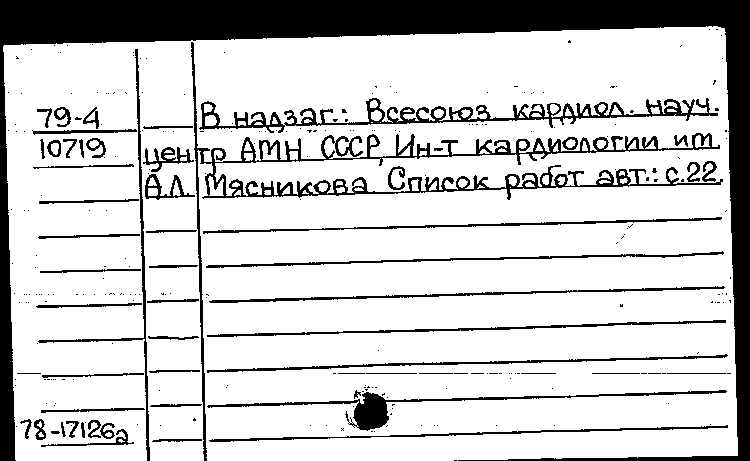 79-4 В надзаг.: Всесоюз кардиол. науч.
10719 центр АМН СССР, Ин-т кардиологии им
А.Л. Мясникова Список работ авт.: с.22.
78-17126а